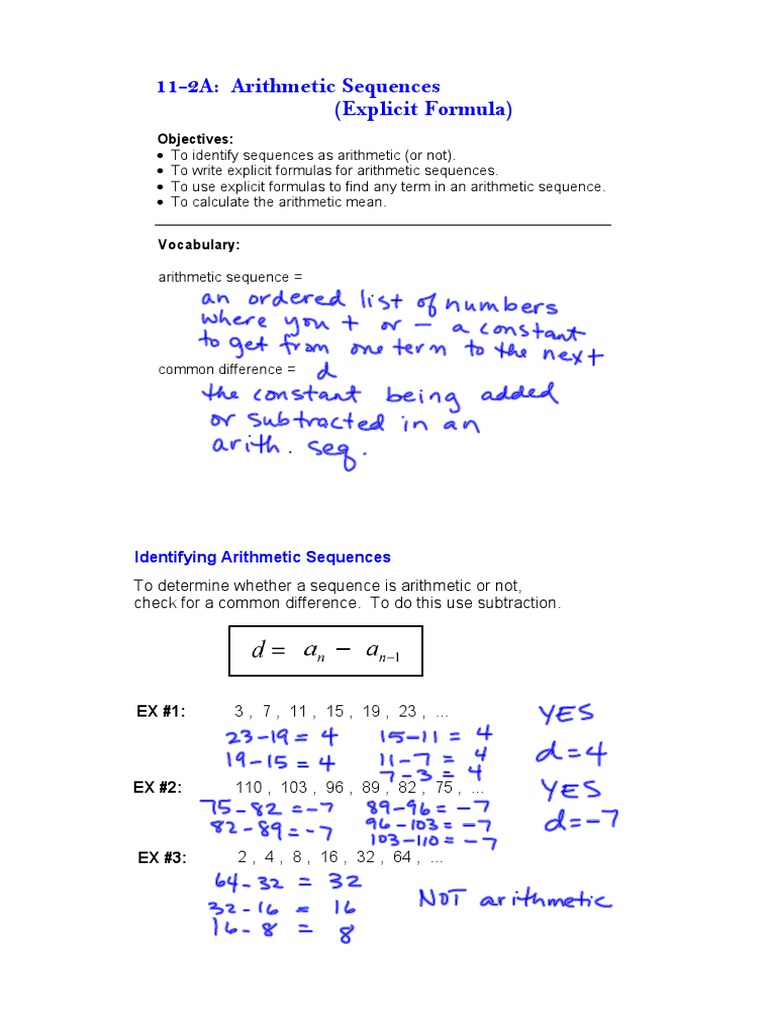 11-2A: Arithmetic Sequences
(Explicit Formula)
Objectives:
• To identify sequences as arithmetic (or not).
• To write explicit formulas for arithmetic sequences.
• To use explicit formulas to find any term in an arithmetic sequence.
• To calculate the arithmetic mean.
Vocabulary:
arithmetic sequence =
an ordered list of numbers
where you + or - a constant
to get from one term to the next
common difference = d
the constant being added
or subtracted in an
arith. seq.
Identifying Arithmetic Sequences
To determine whether a sequence is arithmetic or not,
check for a common difference. To do this use subtraction.
d = aₙ − aₙ₋₁
EX #1: 3 , 7 , 11 , 15 , 19 , 23 , ... YES
23-19 = 4 15-11 = 4
19-15 = 4 11-7 = 4 d = 4
7-3 = 4
EX #2: 110 , 103 , 96 , 89 , 82 , 75 , ... YES
75-82 = -7 89-96 = -7
82-89 = -7 96-103 = -7 d = -7
103-110 = -7
EX #3: 2 , 4 , 8 , 16 , 32 , 64 , ...
64-32 = 32
32-16 = 16 NOT arithmetic
16-8 = 8